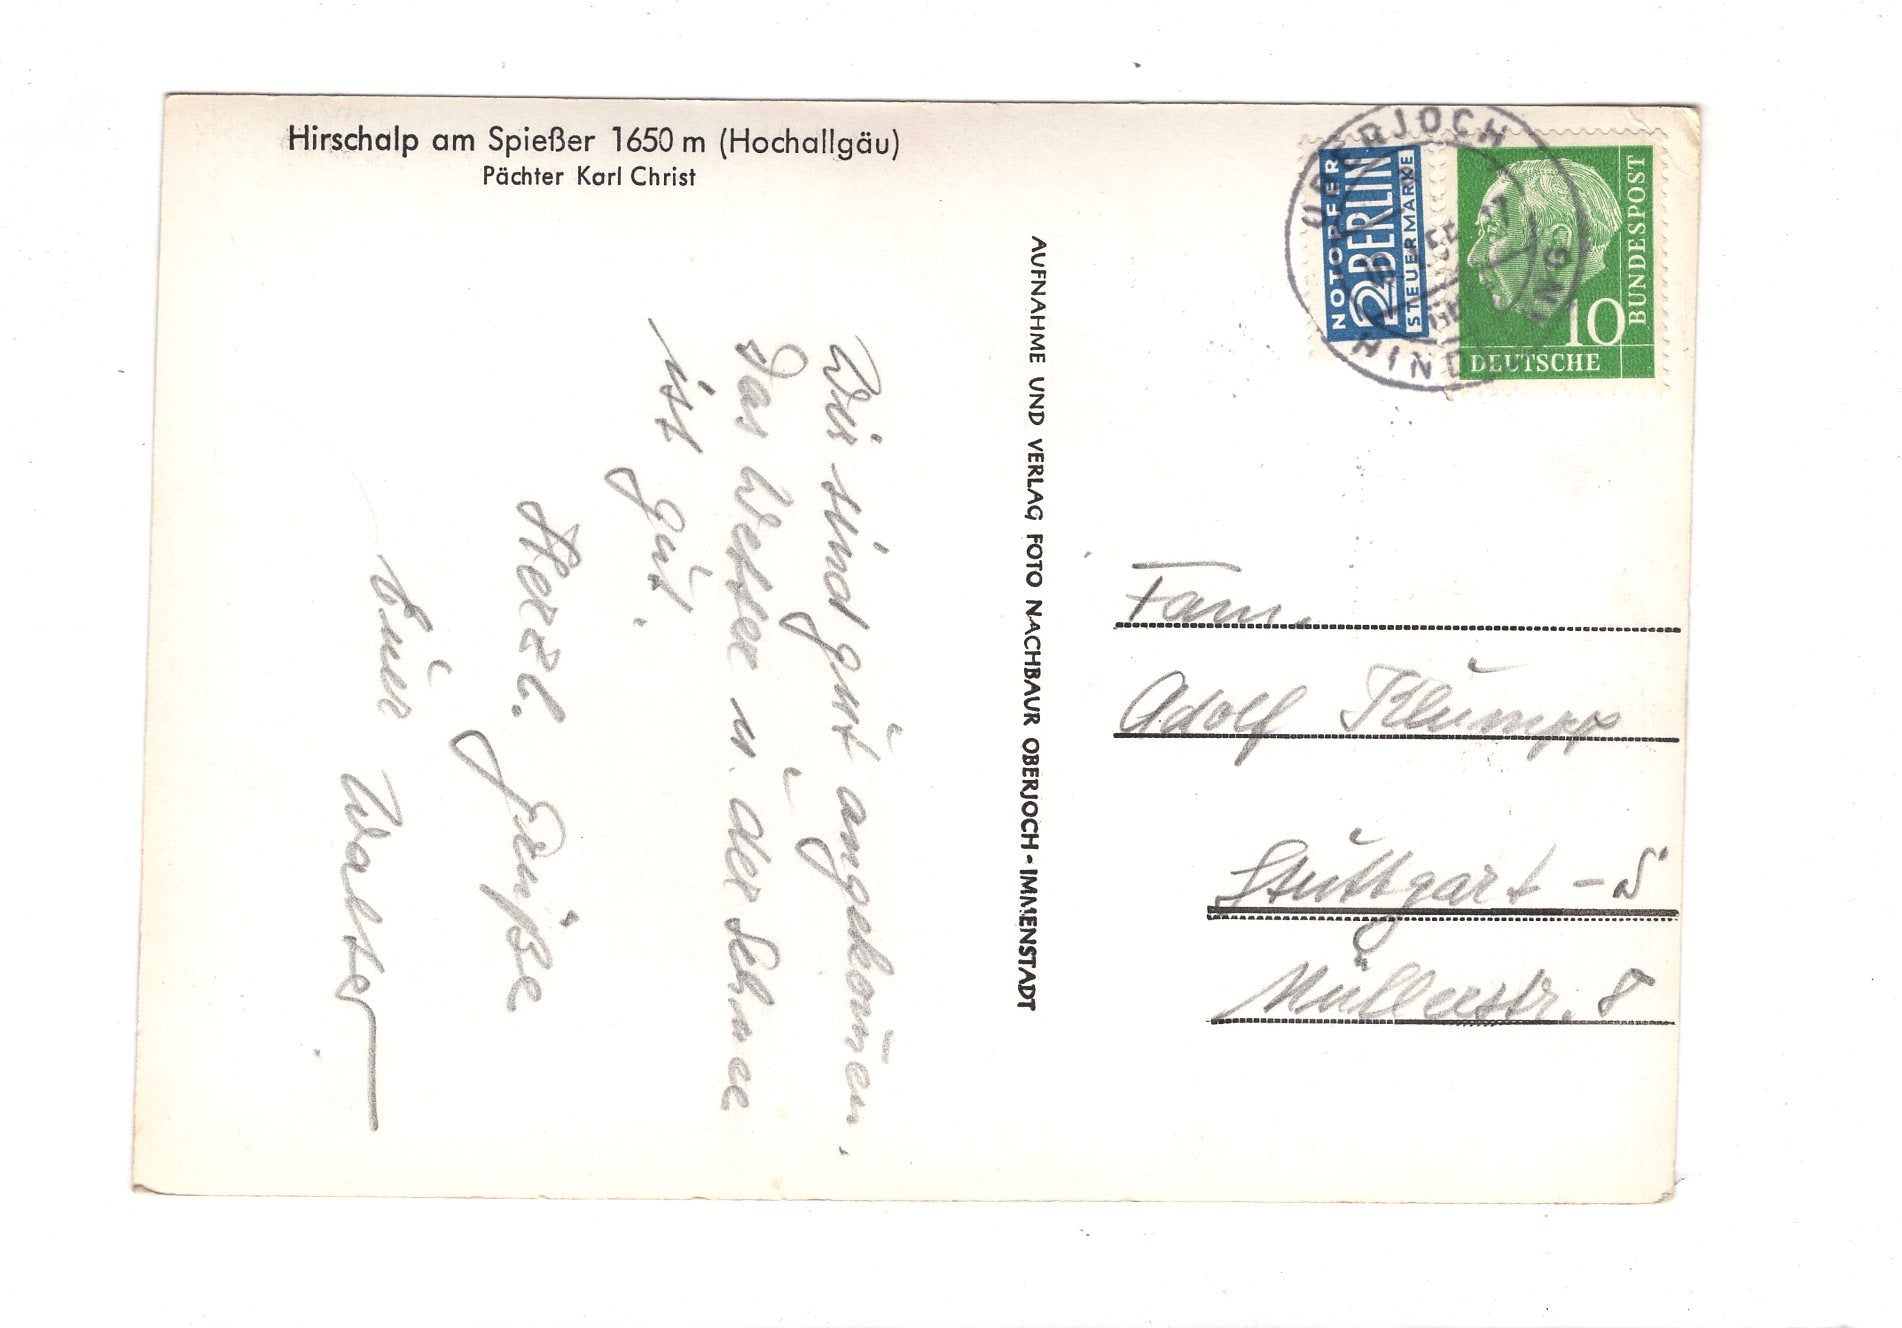 Hirschalp am Spießer 1650 m (Hochallgäu)
Pächter Karl Christ
Wir sind gut angekom̄en.
Das Wetter u. der Schnee
ist gut.
Herzl. Grüße
Euer Walter
AUFNAHME UND VERLAG FOTO NACHBAUR OBERJOCH - IMMENSTADT
NOTOPFER
2 BERLIN
STEUERMARKE
10
DEUTSCHE
BUNDESPOST
OBERJOCH
Fam.
Adolf Klumpp
Stuttgart - S
Müllerstr. 8